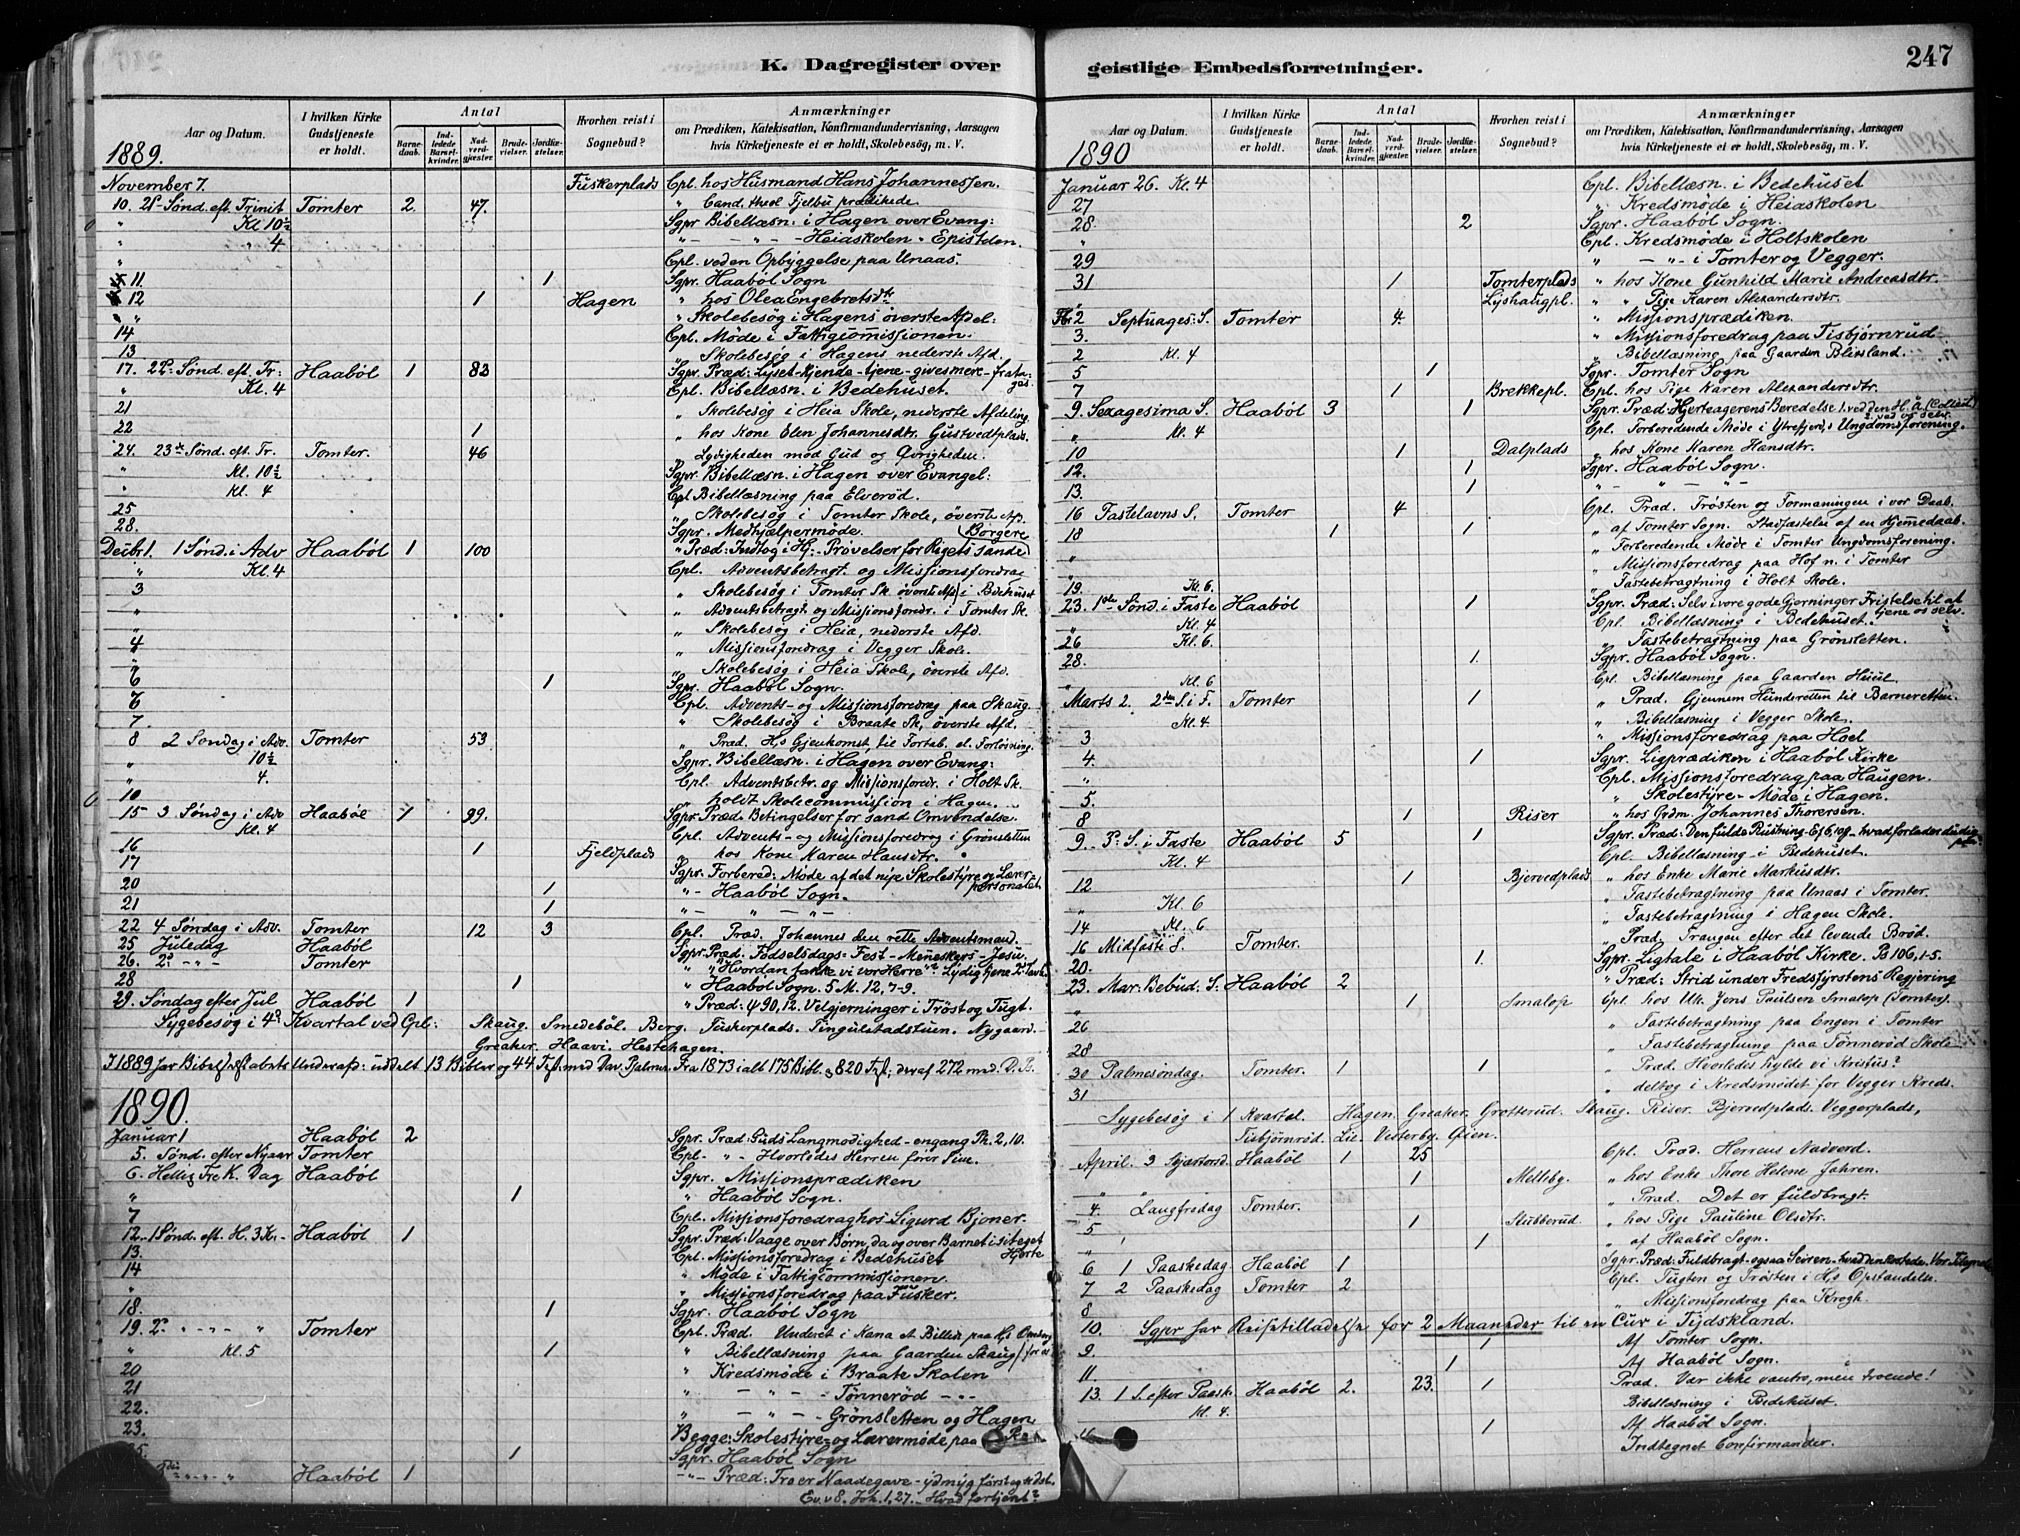 247
K. Dagregister over
geistlige Embedsforretninger.
Aar og Datum.
I hvilken Kirke Gudstjeneste er holdt.
Antal
Barnedaab.
Indledede Barselkvinder.
Nadverdgjæster.
Brudevielser.
Jordfæstelser.
Hvorhen reist i Sognebud?
Anmærkninger
om Prædiken, Katekisation, Konfirmandundervisning, Aarsagen
hvis Kirketjeneste et er holdt, Skolebesøg, m. V.
1889.
November 7. Fuskerplads Cpl. hos Husmand Hans Johannessen.
10. 21 Sønd. eft. Trinit Tomter 2 47. " Cand. theol Fjelbu prædikede.
" Kl 10½ Sgpr Bibellæsn. i Hagen over Evang:
" " 4 " - " - Heiaskolen " Epistelen.
" Cpl. ved en Opbyggelse paa Unaas.
11. 1 Sgpr. Haabøl Sogn
12 1 Hagen " hos Olea Engebretsdtr
" " Skolebesøg i Hagens øverste Afdel:
14 Cpl. Møde i Fattigcommissionen.
13 " Skolebesøg i Hagens nederste Afd.
17. 22 Sønd. eft. Tr: Haabøl 1 83 Sgpr. Præd: Lyset - kjende - tjene - gives mere - frata-ges
" Kl. 4 Cpl. Bibellæsn. i Bedehuset.
21 " Skolebesøg i Heia Skole, nederste Afdeling
22 1 " hos Kone Elen Johannesdtr. Gustvedtplads.
24. 23de Sønd. eft. Tr. Tomter. 46 " Lydigheden mod Gud og Øvrigheden.
" Kl. 10½ Sgpr. Bibellæsn. i Hagen over Evangel:
" Kl. 4 Cpl Bibellæsning paa Elverød.
25 " Skolebesøg i Tomter Skole, øverste Afd.
28. Sgpr. Medhjælpermøde. (Borgere
Decbr 1. 1 Sønd. i Adv Haabøl 1 100 " Præd: Indtog i Hj: - Prøvelser for Rigets sande
" Kl. 4 Cpl. Adventsbetragt. og Missionsforedrag
3 " Skolebesøg i Tomter Sk. øverste Afd i Bedehuset
" " Adventsbetragt. og Missionsfordr. i Tomter Sk.
" " Skolebesøg i Heia, nederste Afd.
4 " Missionsforedrag i Vegger Skole.
" " Skolebesøg i Heia Skole, øverste Afd.
6 1 Sgpr. Haabøl Sogn.
6 Cpl. Advents- og Missionsforedrag paa Skaug.
7 " Skolebesøg i Braate Sk, øverste Afd.
8 2 Søndag i Adv. Tomter 53 " Præd. Hs Gjenkomst, til Fortab. el. Forløsning.
" 10½ Sgpr. Bibellæsn. i Hagen over Evang:
" 4. Cpl. Adventsbetr. og Missionsfordr. i Holt Sk.
10 " holdt Skolecommission i Hagen.
15 3 Søndag i Adv Haabøl 1 99. Sgpr. Præd. Betingelser for sand Omvendelse.
Kl. 4 Cpl. Advents- og Missionsforedrag i Grønsletten
16 1 Fjeldplads " hos Kone Karen Hansdtr.
17 Sgpr. Forbered: Møde af det nye Skolestyre og Lærer-personalet
20 1 " - Haabøl Sogn.
21 1 " - " - " -
22 4 Søndag i Adv. Tomter 12 3 Cpl. Præd. Johannes den rette Adventsmand.
25 Juledag Haabøl Sgpr. Præd: Fødselsdags-Fest - Menneskers - Jesu.
26. 2. " - " - Tomter
28 1 " Haabøl Sogn. 5 M. 12, 7-9.
29. Søndag efter Jul Haabøl 1 " Præd: ψ 90, 12. Velgjerninger i Trøst og Tugt.
Sygebesøg i 4de Kvartal ved Cpl: Skaug. Smedebøl. Berg. Fuskerplads. Tingulstadstuen. Nygaard.
Greaker. Haavi. Hestehagen.
I 1889 har Bibelselskabets Underafd: uddelt 13 Bibler og 44 Tst. med Dav. Psalmer. Fra 1873 i alt 175 Bibl. og 820 Tst; deraf 272 med D. Ps.
1890.
Januar 1 Haabøl 2 Sgpr. Præd: Guds Langmodighed - engang Ph. 2, 10.
5. Sønd. efter Nyaar Tomter Cpl. - " - Hvorledes Herren fører Sine.
6. Hellig Tre K. Dag Haabøl Sgpr. Missionsprædiken
" 1 " Haabøl Sogn.
7 Cpl. Missionsforedrag hos Sigurd Bjoner.
12. 1 Sønd. eft. H. 3 K. - Haabøl 1 Sgpr. Præd: Vaage over Børn, da og over Barnet i sit eget Hjerte
13. Cpl. Missionsforedrag i Bedehuset
14 " Møde i Fattigcommissionen
" " Missionsforedrag paa Fusker.
18. 1 Sgpr. Haabøl Sogn
19. 2. " - " - " Tomter Cpl. Præd. Underet i Kana et Billede paa Hj. Omsorg for os
" Kl. 5 1 " Bibellæsning paa Gaarden Skaug
20 " Kredsmøde i Braate Skolen
21 " - " - " - Tønnerød - " -
22. " - " - " - Grønsletten og Hagen
23. Begge: Skolestyre- og Lærermøde paa
25. 1 Sgpr. Haabøl Sogn
" - " - " Haabøl 1 - " - Præd: Tro er Naadegave - ydmyg først og sidst.
Ev. v 8. Joh. 1, 27. - Hvad fortjent?
1890
Januar 26. Kl. 4 Cpl. Bibellæsn. i Bedehuset
27 " Kredsmøde i Heiaskolen
28. 2 Sgpr. Haabøl Sogn.
" Cpl. Kredsmøde i Holtskolen
29 " - " - i Tomter og Vegger.
31 1 Tomterplads " hos Kone Gunhild Marie Andreasdtr.
" 1 Lyshaugpl. " " Pige Karen Alexandersdtr.
Fbr. 2 Septuages: S. Tomter 4. " Missionsprædiken.
3. " Missionsforedrag paa Tisbjørnrud
2 Kl. 4 " Bibellæsning paa Gaarden Blixland.
5 1 Sgpr. Tomter Sogn
7 1 Brekkepl. Cpl. hos Pige Karen Alexandersdtr.
9. Sexagesima S. Haabøl 3 1 Sgpr. Præd: Hjerteagerens Beredelse 1. ved den H. A. (Collect) 2. ved os selv.
" Kl. 4 Cpl. Forberedende Møde i Ytrefjerd. s Ungdomsforening.
10 1 Dalplads " hos Kone Karen Hansdtr.
12. 1 Sgpr. Haabøl Sogn.
13. 1 " - " - " -
16 Fastelavns S. Tomter 4 Cpl. Præd. Trøsten og Formaningen i vor Daab.
18 1 1 " af Tomter Sogn. Stadfæstelse af en Hjemmedaab.
" " Forberedende Møde i Tomter Ungdomsforening.
" " Missionsforedrag paa Hof n. i Tomter
19. Kl. 6. Fastebetragtning i Holt Skole.
23. 1ste Sønd. i Faste Haabøl 1 Sgpr. Præd: Selv i vore gode Gjerninger Fristelse til at tjene os selv.
" Kl. 4 Cpl. Bibellæsning i Bedehuset.
26 Kl. 6. " Fastebetragtning paa Grønsletten.
28. 1. Sgpr. Haabøl Sogn.
" Kl. 6 Cpl. Bibellæsning paa Gaarden Huul.
Marts 2. 2den S. i F. Tomter 1 " Præd. Gjennem Hunderetten til Barneretten.
Kl. 4. " Bibellæsning i Vegger Skole.
3 " Missionsforedrag paa Hoel
4. 1 Sgpr. Ligprædiken i Haabøl Kirke
" Cpl. Missionsforedrag paa Haugen.
5. " Skolestyre-Møde i Hagen.
8 1 Riser " hos Grdm. Johannes Thoresen.
9. 3. S. i Faste Haabøl 5 1 Sgpr. Præd: Den fulde Rustning - Ef. 6, 10 f - hvad forlader du dig paa?
Kl. 4 Cpl. Bibellæsning i Bedehuset.
12 1 Bjervedplads " hos Enke Marie Markusdtr.
" Kl. 6 " Fastebetragtning paa Unaas i Tomter.
14 Kl. 6 " Fastebetragtning i Hagen Skole.
16 Midfaste S. Tomter. " Præd. Trangen efter det levende Brød.
20. 1. Sgpr. Ligtale i Haabøl Kirke. Ps 106, 1-5.
23. Mar: Bebud: S. Haabøl 2 " Præd: Strid under Fredsfyrstens Regjering
" 1 Smalop Cpl. hos Uk. Jens Paulsen Smalop (Tomter).
26 " Fastebetragtning paa Engen i Tomter
28 " Fastebetragtning paa Tønnerød Skole
30 Palmesøndag. Tomter. 1 1 " Præd. Hvorledes hylde vi Kristus?
31 " deltog i Kredsmødet for Vegger Kreds.
Sygebesøg i 1 Kvartal. Hagen. Greaker. Grotterud. Skaug. Riser. Bjervedplads. Veggerplads,
Tisbjørnrød. Lie. Vesterby. Øien.
April. 3 Skjærtorsd. Haabøl 1 25 Cpl. Præd. Herrens Nadverd.
" " 1 Melleby. " hos Enke Thore Helene Jahren.
4. Langfredag Tomter. " Præd. Det er fuldbragt.
5 1 Slubberud. " hos Pige Pauline Olsdtr.
" 1 " af Haabøl Sogn.
6 1 Paaskedag Haabøl 1 Sgpr. Præd: Fuldbragt ogsaa Seiren - hvad den kostede.
7 2 Paaskedag Tomter 2 Cpl. Tugten og Trøsten i Hs Opstandelse.
8 " Missionsforedrag paa Krogh.
10. Sgpr har Reisetilladelse for 2 Maaneder til en Cur i Tydskland.
9. 1 Af Tomter Sogn.
11. 1 Af Haabøl Sogn.
13. 1 S. efter Paask. Haabøl 2. 23. 1 Præd. Vær ikke vantro, men troende!
Kl. 4. Bibellæsning i Bedehuset
16 1 Af Haabøl Sogn.
Indtegnet Confirmander.